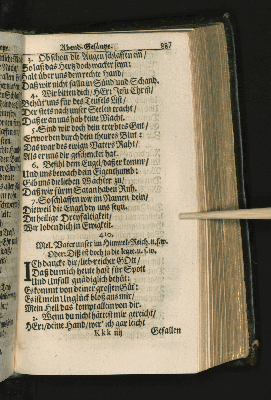 Abend-Gesänge. 887
3. Ob schon die Augen schlaffen ein/
So laß das Hertz doch wacker seyn:
Halt über uns dein rechte Hand/
Daß wir nicht falln in Sünd und Schand.
4. Wir bitten dich/ HErr JEsu Christ/
Behüt uns für des Teufels List/
Der stets nach unser Seelen tracht/
Daß er an uns hab keine Macht.
5. Sind wir doch dein ererbtes Gut/
Erworben durch dein theures Blut/
Das war des ewign Vaters Raht/
Als er uns dir geschencket hat.
6. Befihl dem Engel/ daß er komm/
Und uns bewach dein Eigenthumb:
Gib uns die lieben Wächter zu/
Daß wir fürm Satan haben Ruh.
7. So schlaffen wir im Namen dein/
Dieweil die Engel bey uns seyn.
Du heilige Dreyfaltigkeit/
Wir loben dich in Ewigkeit.
Mel. Vater unser im Himmel-Reich, u.s.w.
Oder: Diß ist doch ja die letzte, u. s. w.
Ich dancke dir/ lieb-reicher GOtt/
Daß du mich heute hast für Spott
Und Unfall gnädiglich behüt:
Es kommt von deiner grossen Güt:
Es ist mein Unglück bloß an mir/
Mein Heil das kompt allein von dir.
2. Wenn du nicht hättest mir gereicht/
HErr/ deine Hand/ wär' ich gar leicht
Kkk iiij Gefallen